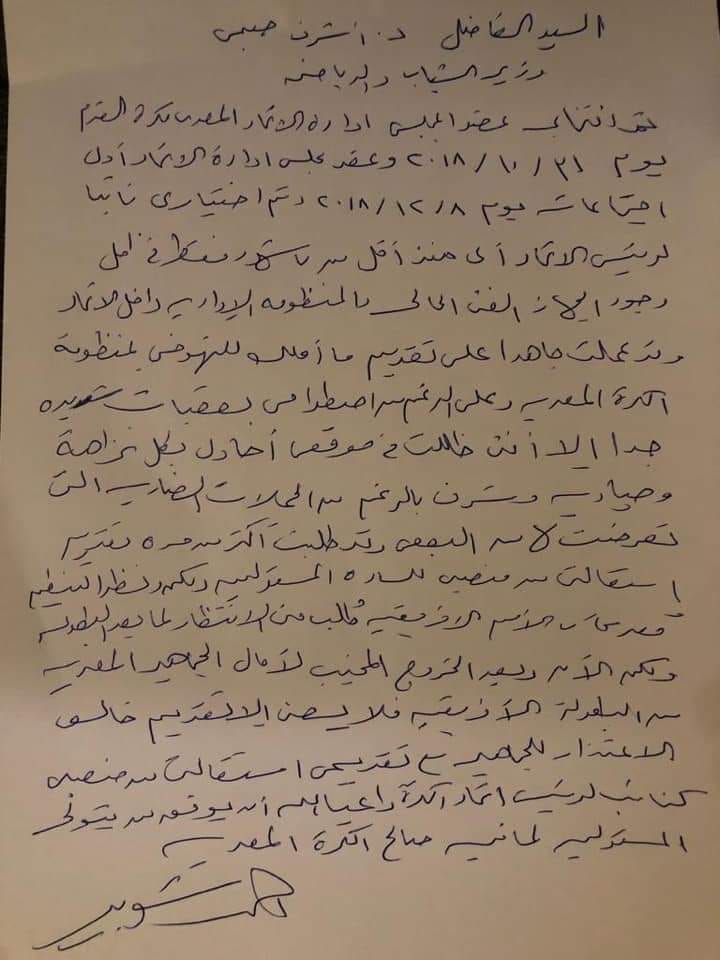 السيد الفاضل د. أشرف صبحى
وزير الشباب والرياضه
تم انتخابى عضوا بمجلس ادارة الاتحاد المصرى لكرة القدم
يوم ٣١ / ١٠ / ٢٠١٨ وعقد مجلس ادارة الاتحاد أول
اجتماعاته يوم ٢٠١٨/١٢/٨ وتم اختيارى نائبا
لرئيس الاتحاد أى منذ أقل من ٧ شهور فقط فى ظل
وجود الجهاز الفنى الحالى والمنظومه الإداريه داخل الاتحاد
وقد عملت جاهدا على تقديم ما أملك للنهوض بمنظومة
الكرة المصريه وعلى الرغم من اصطدامى بعقبات شديده
جدا إلا أننى ظللت فى موقعى أحاول بكل نزاهة
وحياديه وشرف بالرغم من الحملات الضاريه التى
تعرضت لها من البعض وقد طلبت أكثر من مره تقديم
إستقالتى من منصبى للساده المسئولين ولكن ونظرا لتنظيم
مصر كأس الأمم الافريقيه طُلب منى الانتظار لما بعد البطوله
ولكن الآن وبعد الخروج المخيب لآمال الجماهير المصريه
من البطولة الأفريقيه فلا يسعنى إلا تقديم خالص
الاعتذار للجماهير مع تقديمى استقالتى من منصبى
كنائب لرئيس اتحاد الكرة داعيا الله أن يوفق من يتولى
المسئوليه لما فيه صالح الكرة المصريه
احمد شوبير